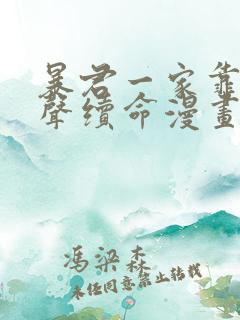 暴君一家靠
聲續命漫畫
馮梁森
未经同意禁止转载